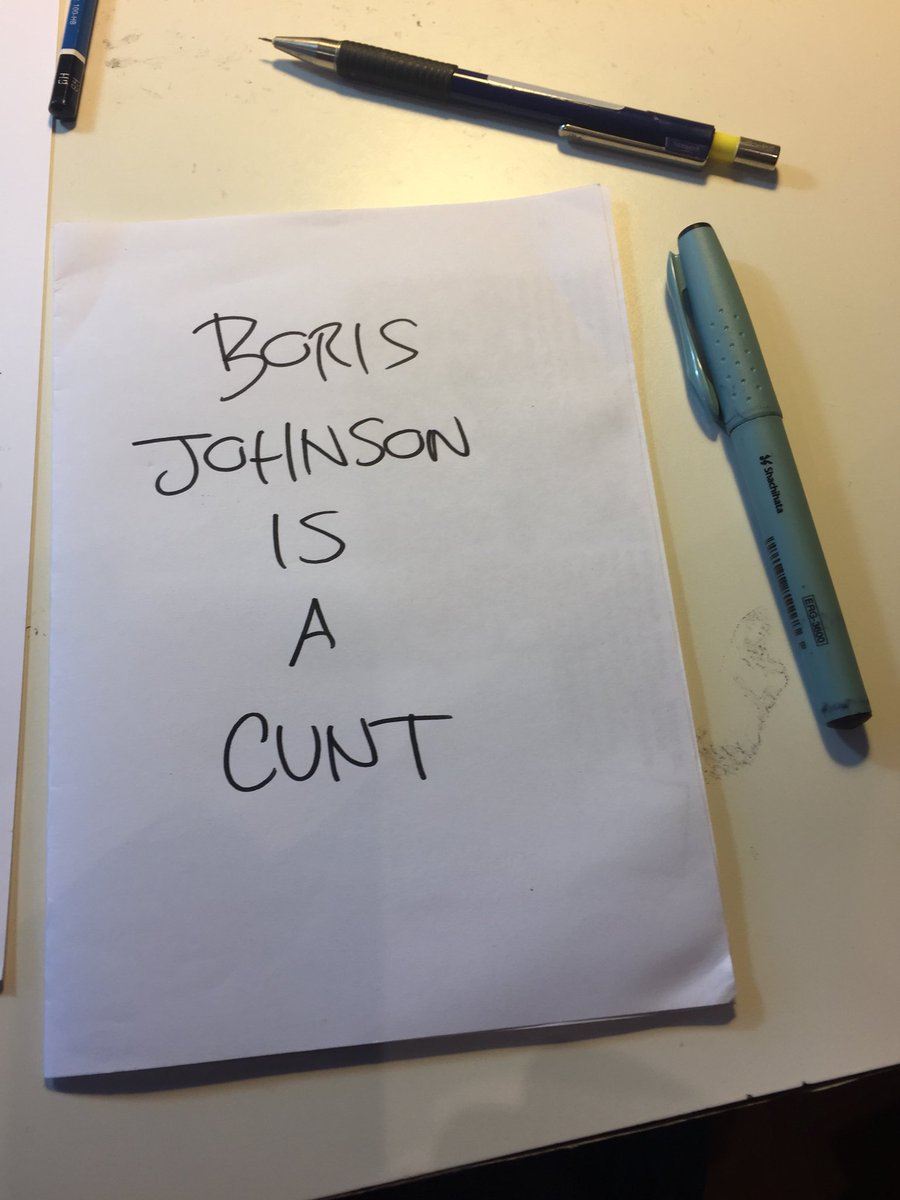 BORIS
JOHNSON
IS
A
CUNT
100-HB
HB
Shachihata
ERG-3600